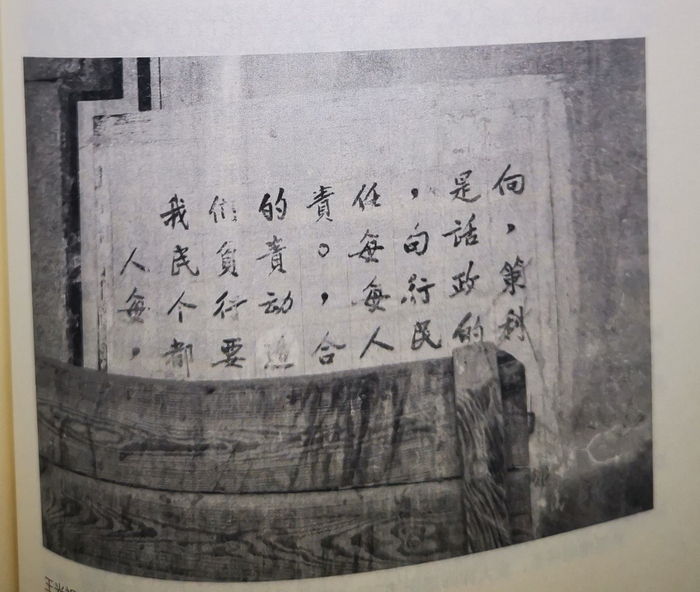 我们的責任，是向
人民負責。每句話，
每个行动，每項政策
，都要适合人民的利